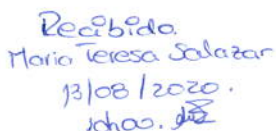 Recibido.
Maria Teresa Salazar
13/08/2020.